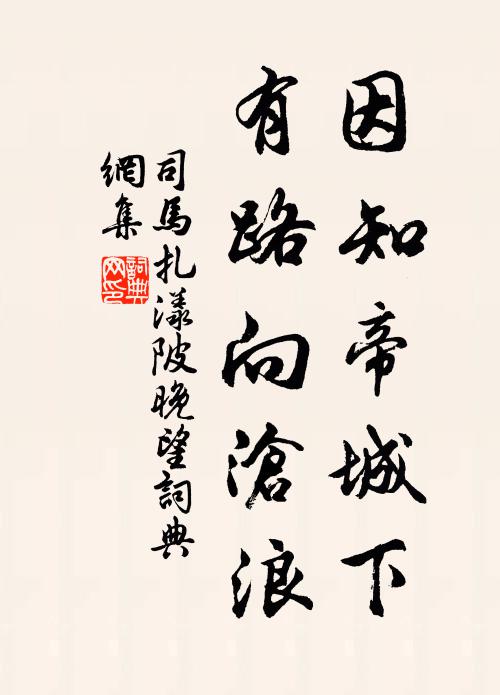 因知帝城下
有路向滄浪
司馬扎漾陂晚望詞典
網集
詞典網印